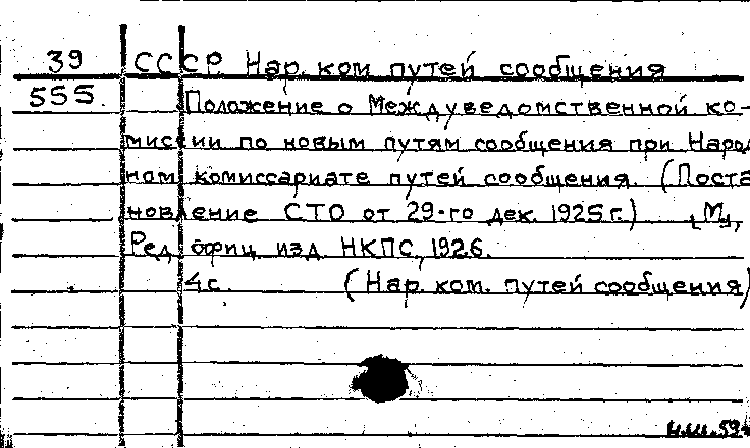 39 СССР. Нар. ком. путей сообщения
555. Положение о Междуведомственной ко-
миссии по новым путям сообщения при Народ
ном комиссариате путей сообщения. (Поста
новление СТО от 29-го дек. 1925 г.) [М],
Ред. офиц. изд. НКПС, 1926.
4 с. (Нар. ком. путей сообщения)